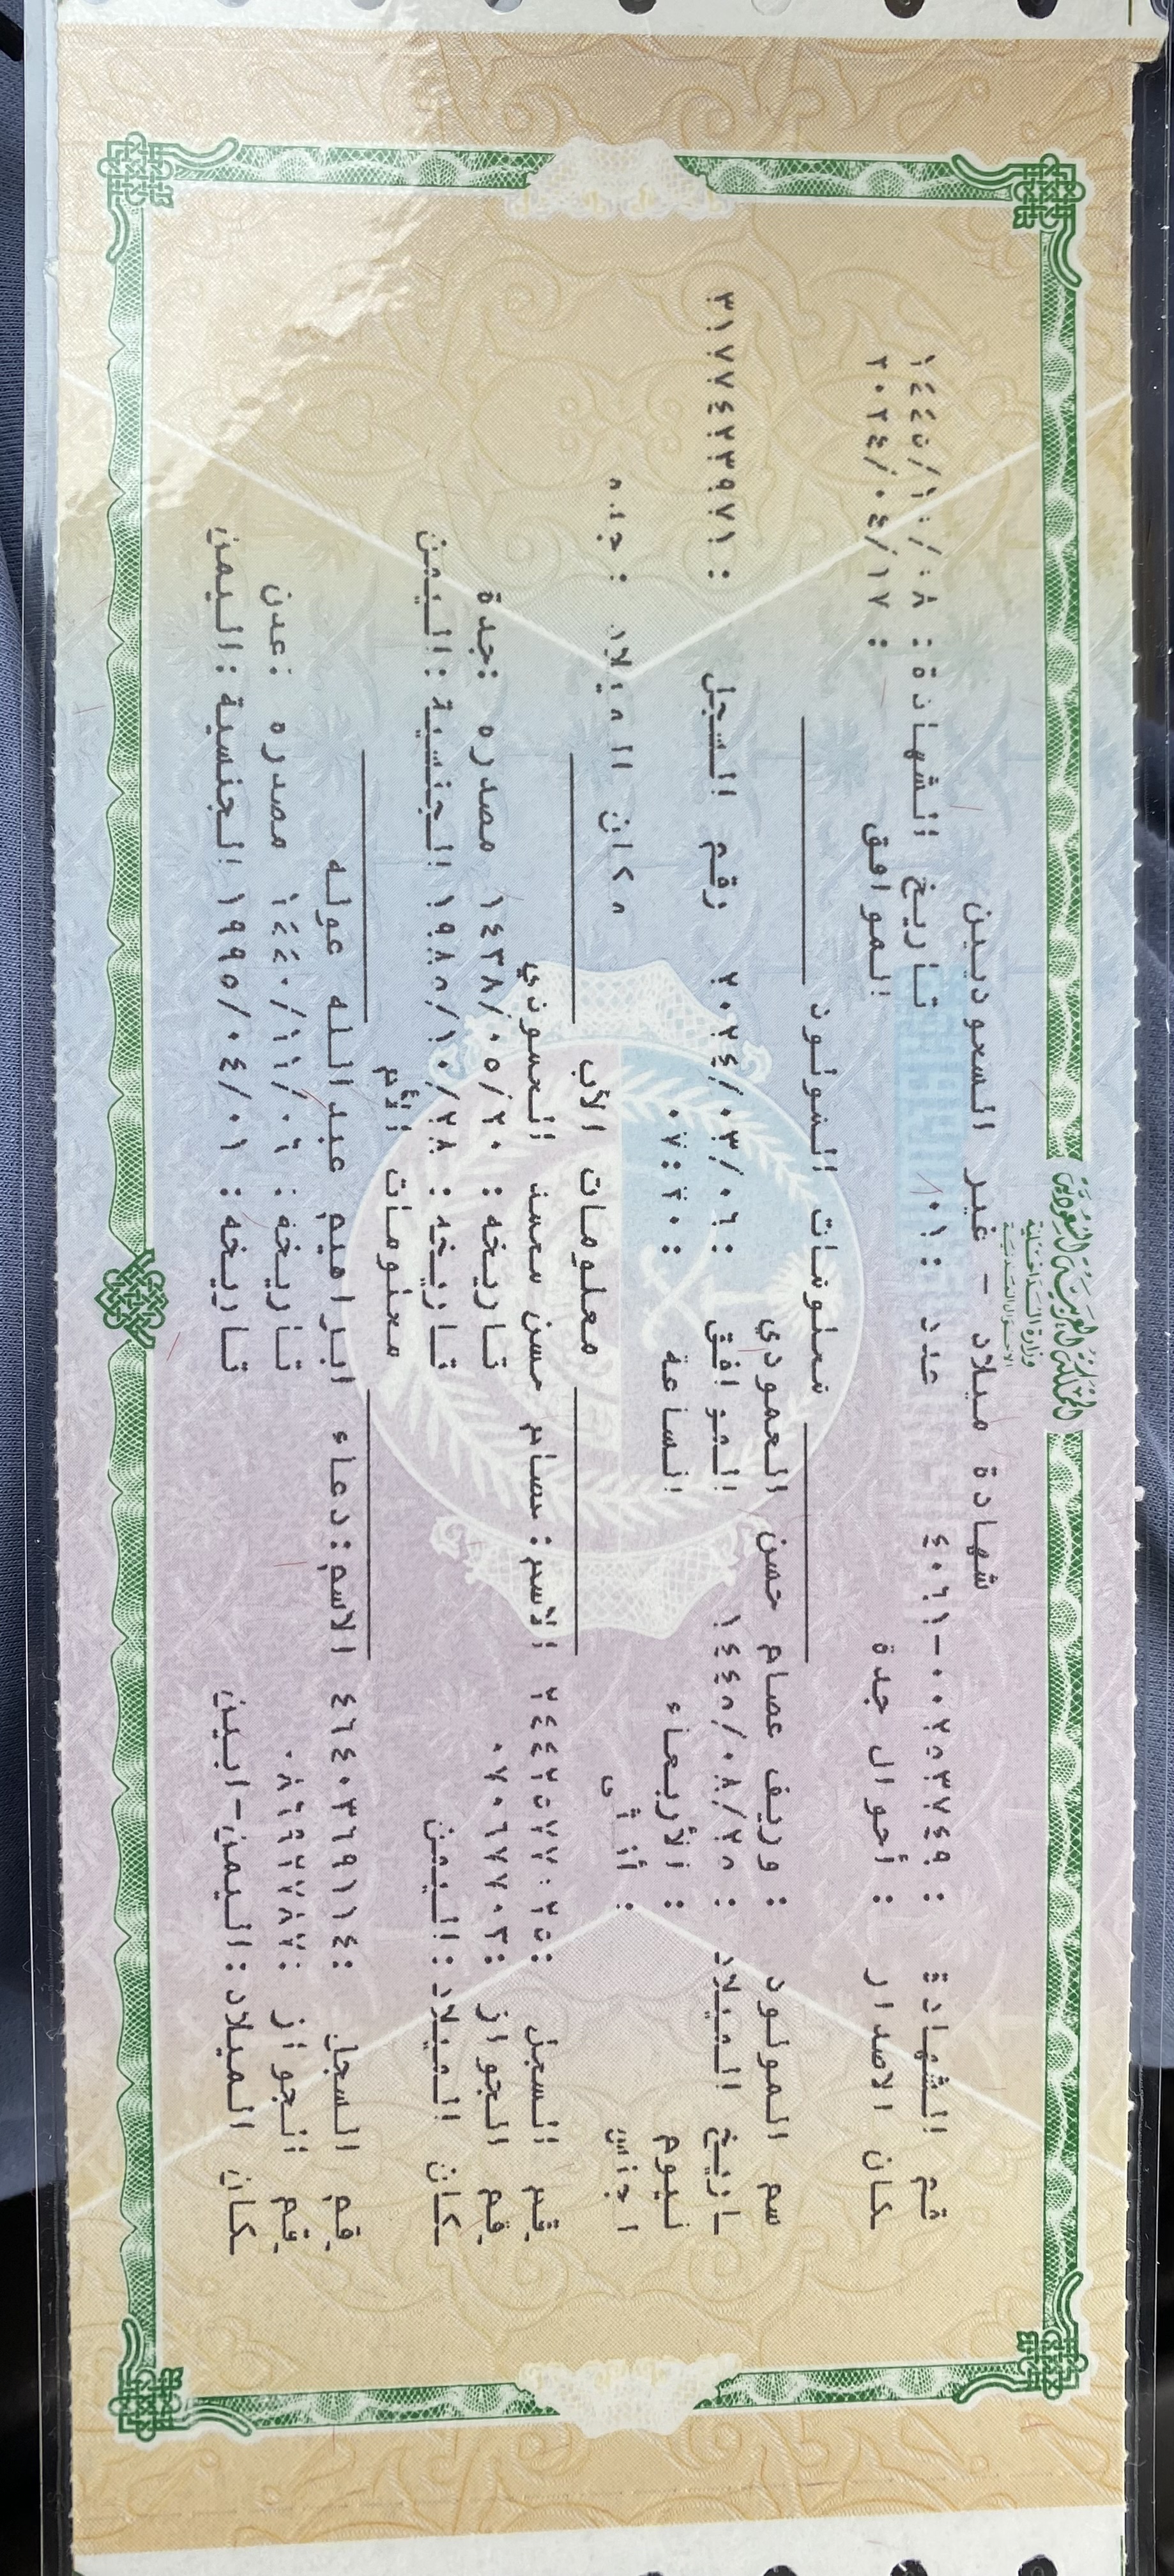 المملكة العربية السعودية
وزارة الداخلية
الأحوال المدنية
شهادة ميلاد - غير السعوديين
قم الشهادة : ٤٠٦١-٠٠٢٥٣٧٤٩ عدد : ٠١ تاريخ الشهادة : ١٤٤٥/١٠/٠٨
كان الاصدار : أحوال جدة الموافق : ٢٠٢٤/٠٤/١٧
معلومات المولود
سم المولود : وريف عصام حسن العمودي
اريخ الميلاد : ١٤٤٥/٠٨/٢٥ الموافق : ٢٠٢٤/٠٣/٠٦ رقم السجل : ٣١٧٧٤٢٣٩٧١
ليوم : الأربعاء الساعة : ٠٧:٢٠
الجنس : أنثى مكان الميلاد : جدة
معلومات الأب
قم السجل : الاسم : عصام حسن محمد العمودي
قم الجواز : ٠٧٠٦٧٧٠٣ تاريخه : ١٤٣٨/٠٥/٢٠ مصدره : جدة
كان الميلاد : اليمن تاريخه : ١٩٨٥/١٠/٢٨ الجنسية : اليمن
معلومات الأم
قم السجل : ٤٦٤٠٣٦٩١١٤ الاسم : دعاء ابراهيم عبدالله عوله
قم الجواز : ٠٨٦٦٢٧٨٧ تاريخه : ١٤٤٠/١١/٠٦ مصدره : عدن
كان الميلاد : اليمن-ابين تاريخه : ١٩٩٥/٠٤/٠١ الجنسية : اليمن